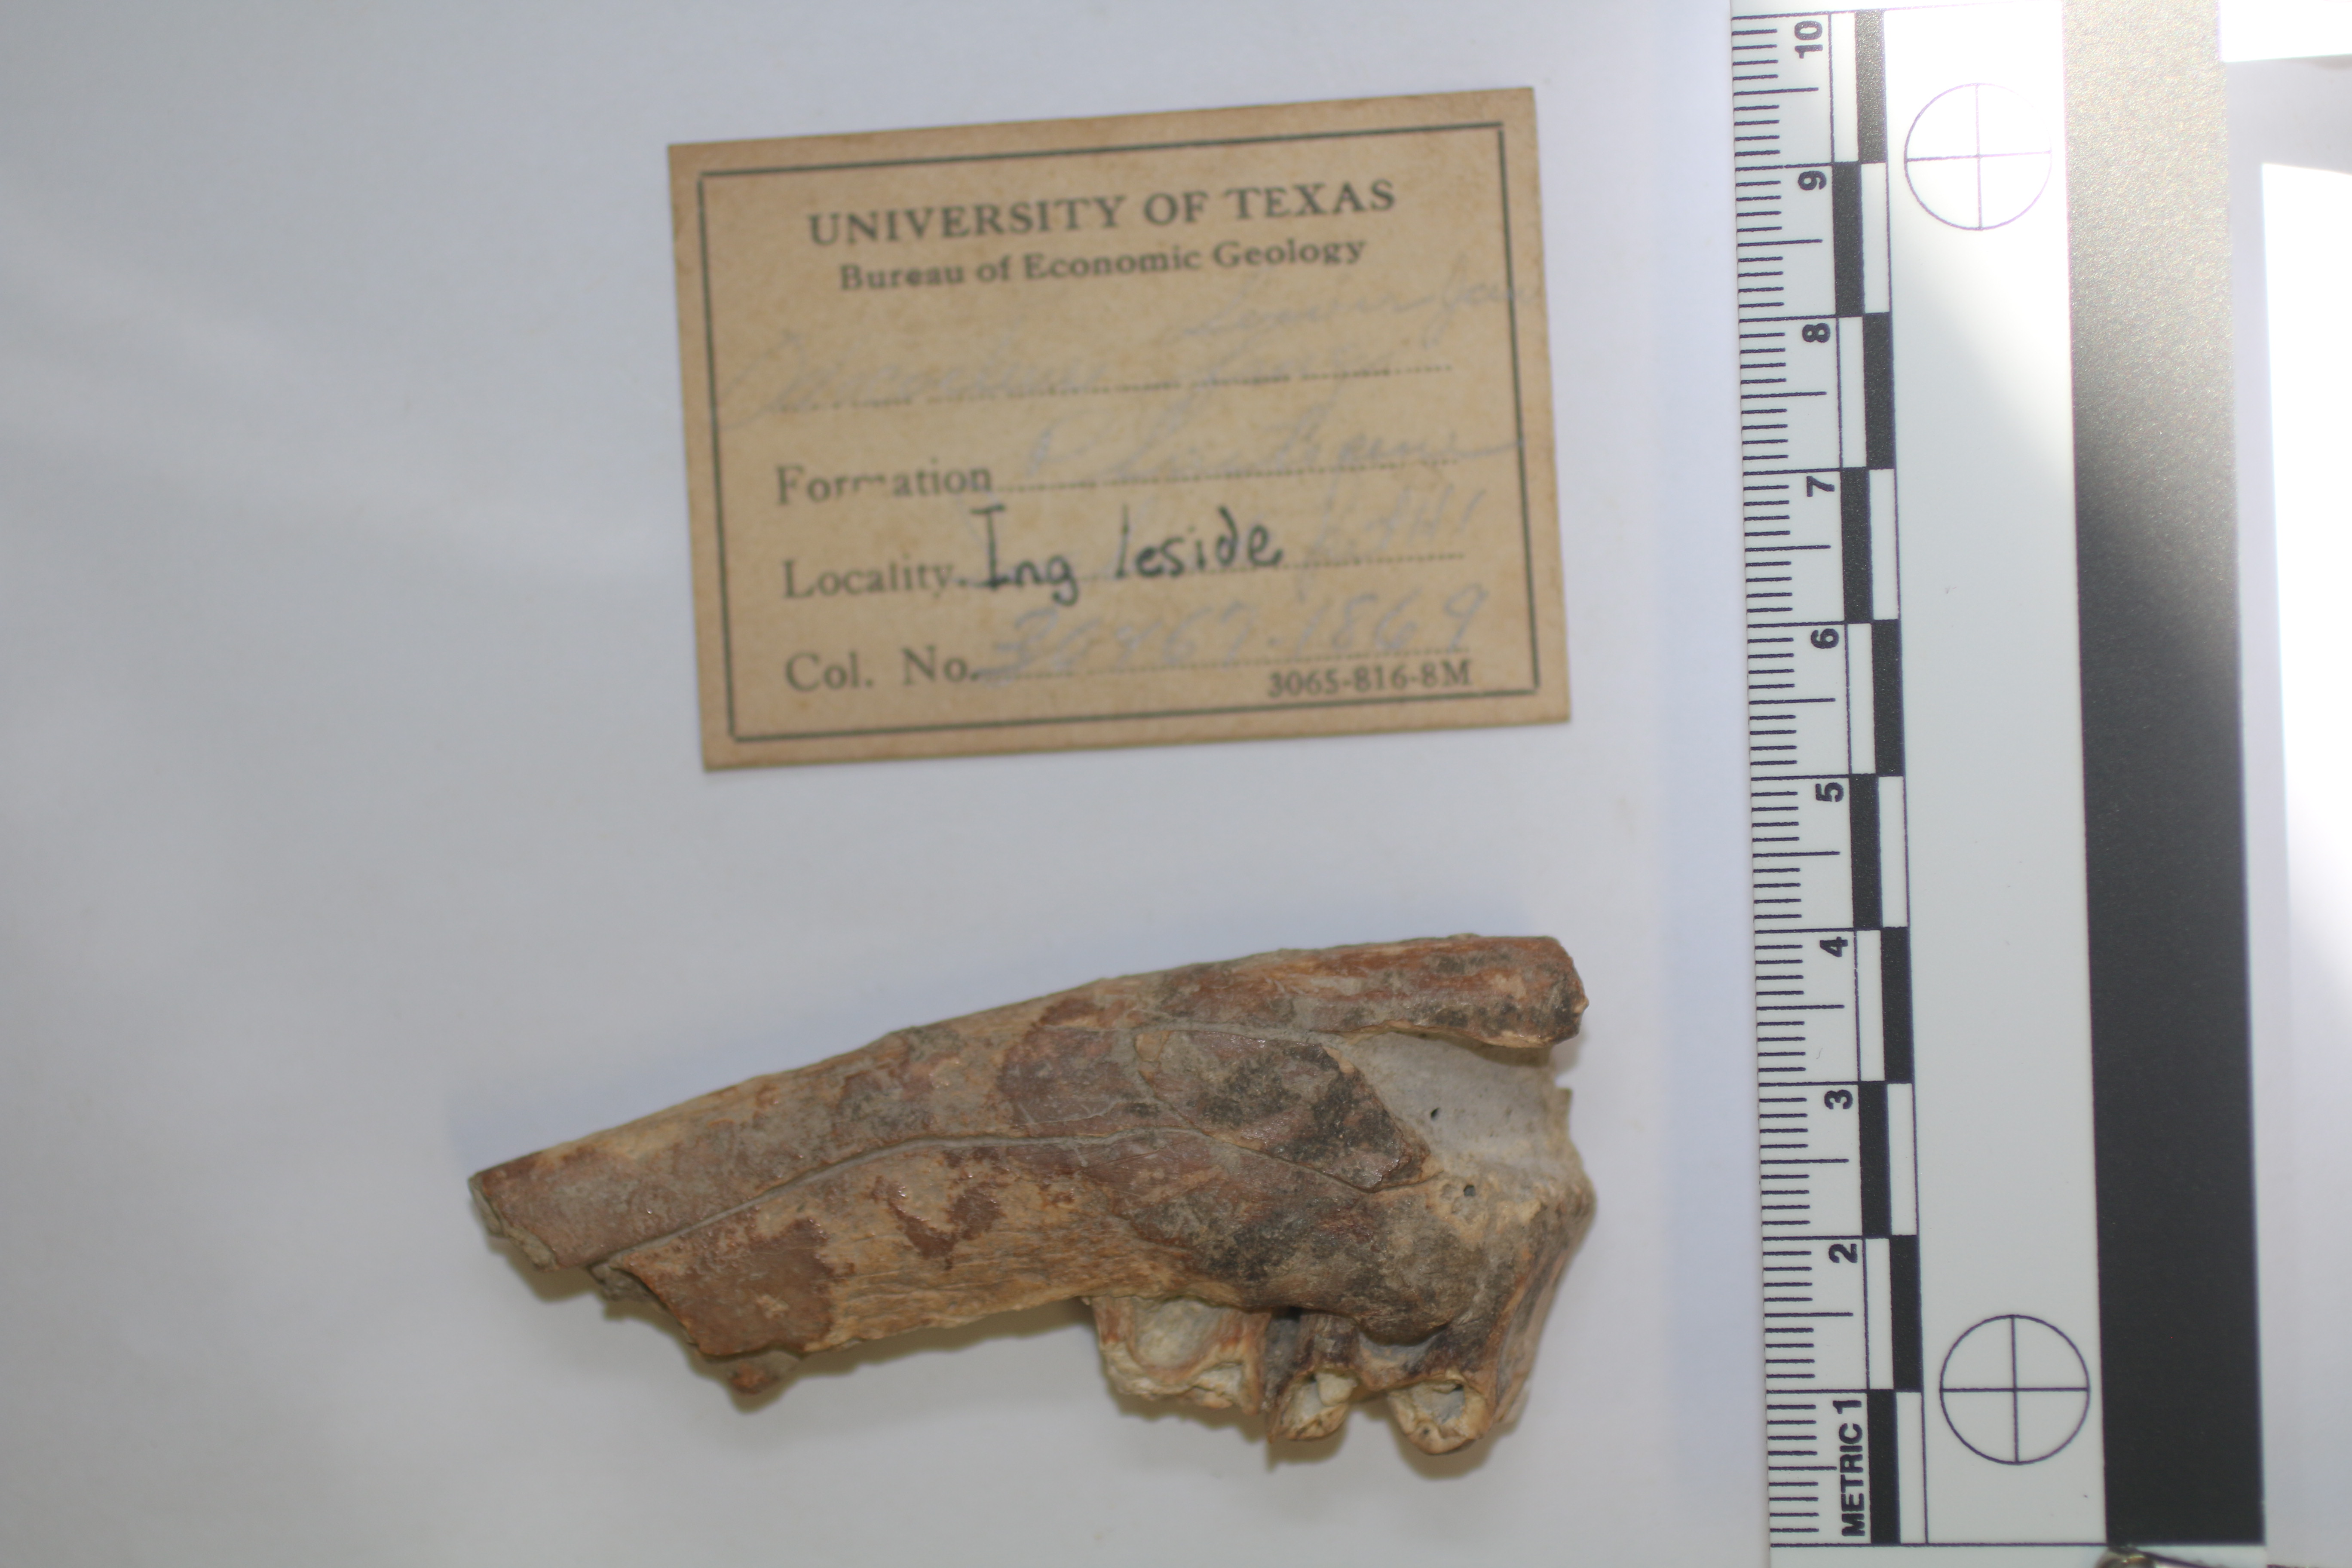 UNIVERSITY OF TEXAS
Bureau of Economic Geology
Lower jaw
Formation
Locality. Ingleside
Col. No. 30967-1869
3065-816-8M
10
9
8
7
6
5
4
3
2
METRIC 1